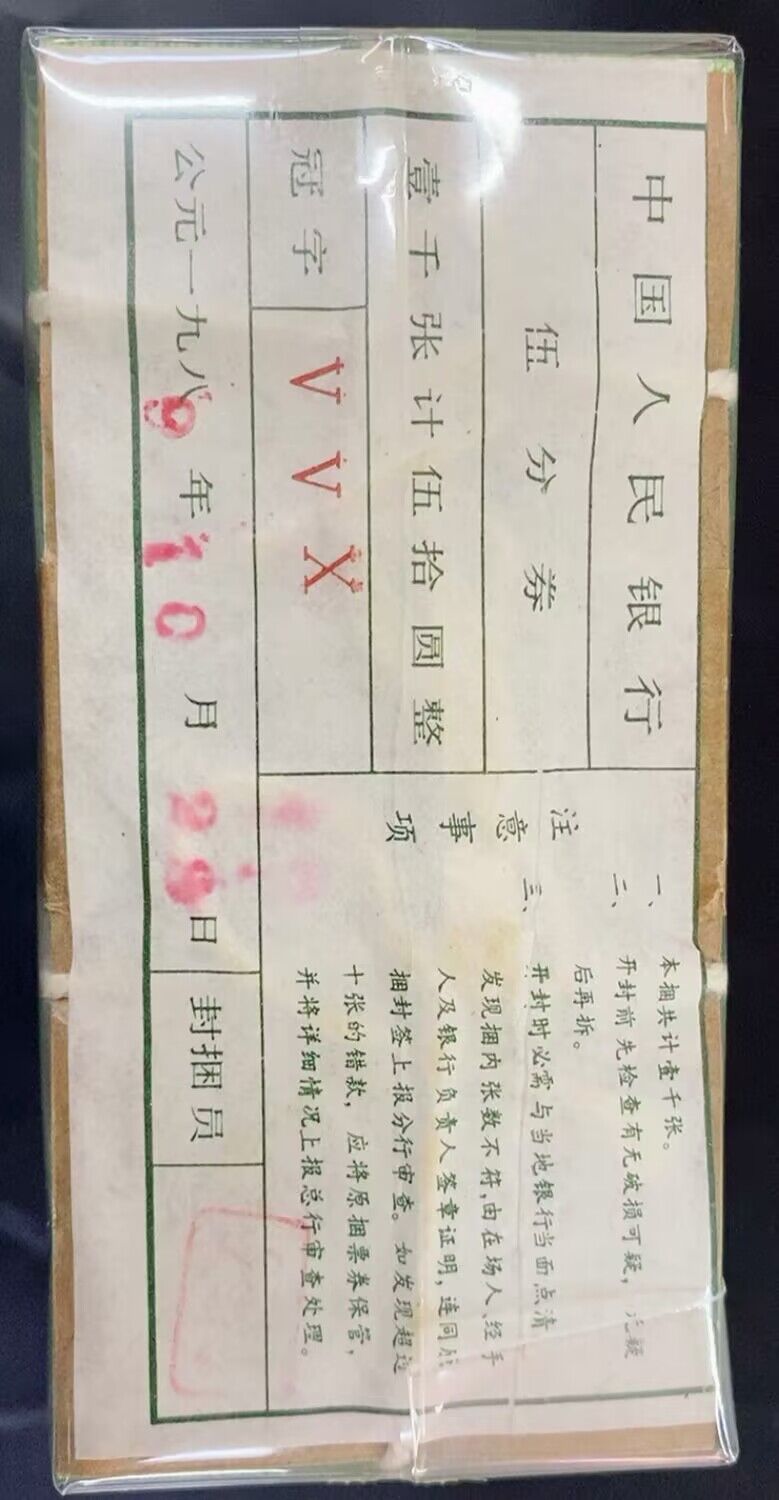 中国人民银行
伍分券
壹千张计伍拾圆整
冠字 VVX
公元一九八9年10月2日
封捆员
注意事项
一、本捆共计壹千张。
二、开封前先检查有无破损可疑，疑
后再拆。
三、开封时必需与当地银行当面点清
发现捆内张数不符，由在场人、经手
人及银行负责人签章证明，连同
捆封签上报分行审查。如发现超过
十张的错款，应将原捆票券保管，
并将详细情况上报总行审查处理。